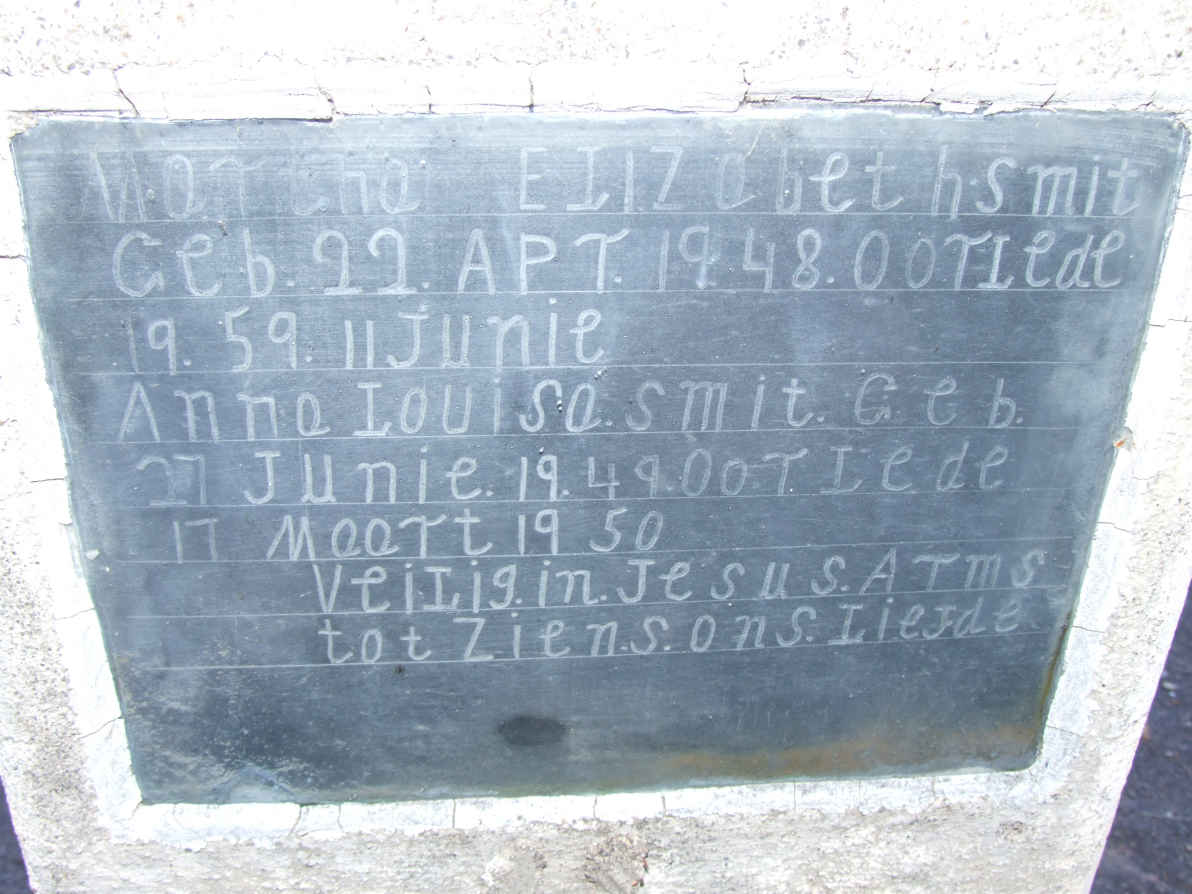 Martha ELIZabeth.smit
Geb. 22. APr. 19.48. OOrIede
19. 59. 11 Junie
Anna Louisa. smit. G. eb.
27 Junie. 19. 49. OO. rIede
17 Maart 19 50
VeiIig. in. Jesus. Arms
tot Ziens. ons. Liefde